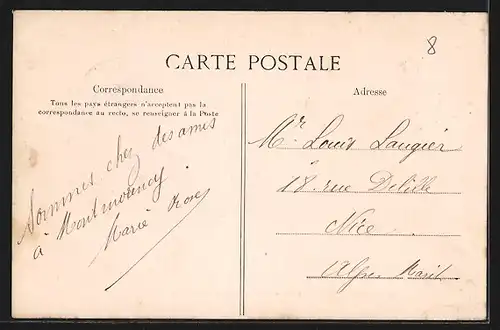 8
CARTE POSTALE
Correspondance
Tous les pays étrangers n'acceptent pas la
correspondance au recto, se renseigner à la Poste
Sommes chez des amis
à Montmorency
Marie Rose
Adresse
Mr Louis Laugier
18. rue Delille
Nice
Alpes Marit